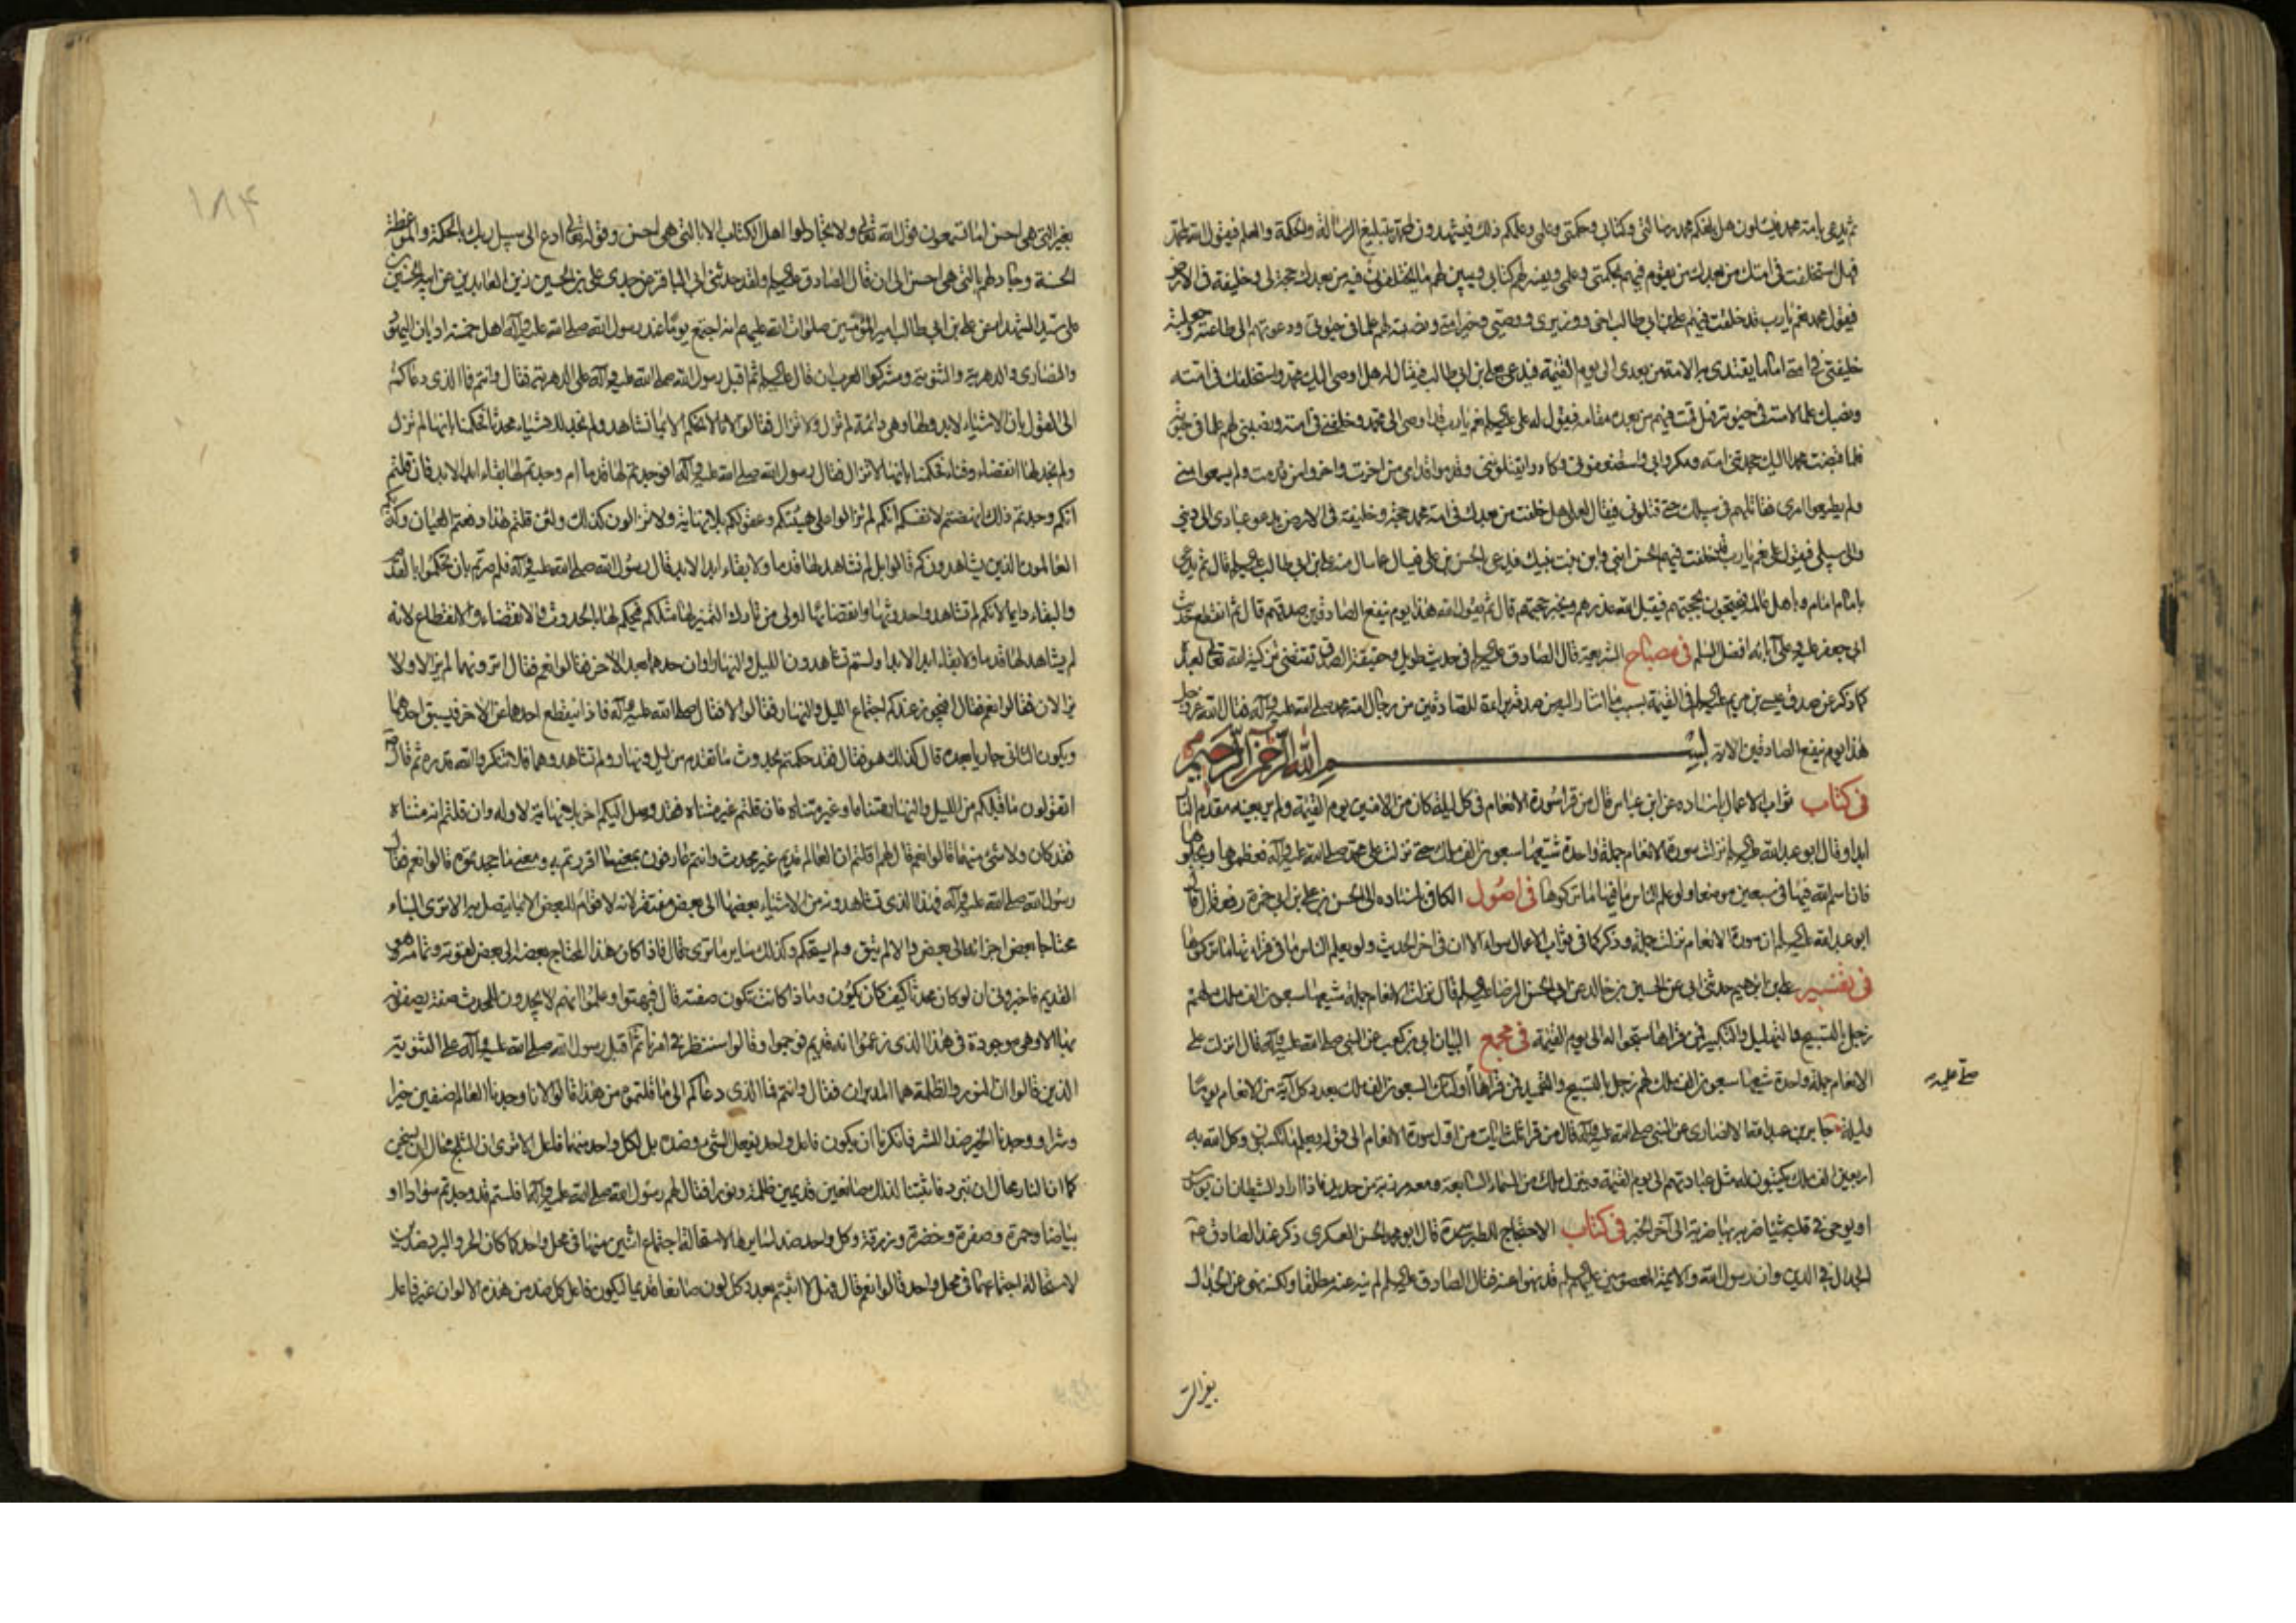 ثم يدعى بامة محمد فيسئلون هل بلغكم محمد رسالتى وكتابى وحكمتى وعلمى وعلمكم ذلك فيشهدون لمحمد بتبليغ الرسالة والحكمة والعلم فيقول الله لمحمد
فهل استخلفت فى امتك من بعدك من يقوم فيهم بحكمتى وعلمى ويفسر لهم كتابى ويبين لهم ما يختلفون فيه من بعدك حجة لى وخليفة فى الارض
فيقول محمد نعم يارب قد خلفت فيهم على بن ابى طالب اخى ووزيرى ووصيى وخير امتى ونصبته لهم علما فى حيوتى ودعوتهم الى طاعته وجعلته
خليفتى فى امتى اماما يقتدى به الامة من بعدى الى يوم القيمة فيدعى بعلى بن ابى طالب فيقال له هل اوصى اليك محمد واستخلفك فى امته
ونصبك علما لامته فى حيوته فهل قمت فيهم من بعده مقامه فيقول له على عليه السلم نعم يارب قد اوصى الى محمد وخلفنى فى امته ونصبنى لهم علما فى حيوته
فلما قبضت محمدا اليك جحدتنى امته ومكروا بى واستضعفونى وكادوا يقتلوننى وقدموا قدامى من اخرت واخروا من قدمت ولم يسمعوا منى
ولم يطيعوا امرى فقاتلتهم فى سبيلك حتى قتلونى فيقال لعلى هل خلفت من بعدك فى امة محمد حجة وخليفة فى الارض يدعو عبادى الى دينى
والى سبيلى فيقول على نعم يارب قد خلفت فيهم الحسن ابنى وابن بنت نبيك فيدعى الحسن بن على فيسال عما سال عنه على بن ابى طالب عليه السلم قال ثم يدعى
بامام امام وباهل عالمه فيحتجون بحجتهم فيقبل الله عذرهم ويجيز حجتهم قال ثم يقول الله هذا يوم ينفع الصادقين صدقهم قال ثم انقطع حديث
ابى جعفر عليه وعلى آبائه افضل السلم فى مصباح الشريعة قال الصادق عليه السلم فى حديث طويل وحقيقة الصدق تقتضى تزكية الله تعالى لعبده
كما ذكر عن صدق عيسى بن مريم عليه السلم فى القيمة بسبب ما اشار اليه من صدقه براءة للصادقين من رجال امة محمد صلى الله عليه وآله فقال الله عز وجل
هذا يوم ينفع الصادقين الاية بسم الله الرحمن الرحيم
فى كتاب ثواب الاعمال باسناده عن ابن عباس قال من قرا سورة الانعام فى كل ليلة كان من الامنين يوم القيمة ولم ير بعينه مقدم النار
ابدا وقال ابو عبد الله عليه السلم نزلت سورة الانعام جملة واحدة شيعها سبعون الف ملك حتى نزلت على محمد صلى الله عليه وآله فعظموها وبجلوها
فان اسم الله فيها فى سبعين موضعا ولو علم الناس ما فيها ما تركوها فى اصول الكافى باسناده الى الحسن بن على بن ابى حمزة رفعه قال قال
ابو عبد الله عليه السلم ان سورة الانعام نزلت جملة وذكر كما فى ثواب الاعمال سواء الا ان فى اخر الحديث ولو يعلم الناس ما فى قراءتها ما تركوها
فى تفسير على بن ابرهيم حدثنى ابى عن الحسين بن خالد عن ابى الحسن الرضا عليه السلم قال نزلت الانعام جملة شيعها سبعون الف ملك لهم
زجل بالتسبيح والتهليل والتكبير فمن قراها سبحوا له الى يوم القيمة فى مجمع البيان ابى بن كعب عن النبى صلى الله عليه وآله قال انزلت على
الانعام جملة واحدة شيعها سبعون الف ملك لهم زجل بالتسبيح والتحميد فمن قراها اولئك السبعون الف ملك بعدد كل آية من الانعام يوما
صلى عليه
وليلة جابر بن عبد الله الانصارى عن النبى صلى الله عليه وآله قال من قرا ثلث ايات من اول سورة الانعام الى قوله ويعلم ما تكسبون وكل الله به
اربعين الف ملك يكتبون له مثل عبادتهم الى يوم القيمة وينزل ملك من السماء السابعة ومعه مرزبة من حديد فاذا اراد الشيطان ان يوسوس
او يوحى فى قلبه شيئا ضربه بها ضربة الى آخر الخبر فى كتاب الاحتجاج للطبرسى ره قال ابو محمد الحسن العسكرى ذكر عند الصادق ع
الجدال فى الدين وان رسول الله والائمة المعصومين عليهم السلم قد نهوا عنه فقال الصادق عليه السلم لم ينه عنه مطلقا ولكنه نهى عن الجدال
بغير التى
١٨٤
بغير التى هى احسن اما تسمعون قول الله تعالى ولا تجادلوا اهل الكتاب الا بالتى هى احسن وقوله تعالى ادع الى سبيل ربك بالحكمة والموعظة
الحسنة وجادلهم بالتى هى احسن الى ان قال الصادق عليه السلم ولقد حدثنى ابى الباقر عن جدى على بن الحسين زين العابدين عن ابيه الحسين بن
على سيد الشهداء عن على بن ابى طالب امير المؤمنين صلوات الله عليهم انه اجتمع يوما عند رسول الله صلى الله عليه وآله اهل خمسة اديان اليهود
والنصارى والدهرية والثنوية ومشركوا العرب الى ان قال عليه السلم ثم اقبل رسول الله صلى الله عليه وآله على الدهرية فقال وانتم فما الذى دعاكم
الى القول بان الاشياء لا بدو لها وهى دائمة لم تزل ولا تزال فقالوا لانا لا نحكم الا بما نشاهد ولم نجد للاشياء محدثا فحكمنا بانها لم تزل
ولم نجد لها انقضاء وفناء فحكمنا بانها لا تزال فقال رسول الله صلى الله عليه وآله افوجدتم لها قدما ام وجدتم لها بقاء ابد الابد فان قلتم
انكم وجدتم ذلك انهضتم لانفسكم انكم لم تزالوا على هيئتكم وعقولكم بلا نهاية ولا تزالون كذلك ولئن قلتم هذا دفعتم العيان وكذبكم
العالمون الذين يشاهدونكم قالوا بل لم نشاهد لها قدما ولا بقاء ابد الابد قال رسول الله صلى الله عليه وآله فلم صرتم بان تحكموا بالقدم
والبقاء دايما لانكم لم تشاهدوا حدوثها وانقضائها اولى من تارك التميز لها مثلكم فيحكم لها بالحدوث والانقضاء والانقطاع لانه
لم يشاهد لها قدما ولا بقاء ابد الابد اولستم تشاهدون الليل والنهار وان احدهما بعد الاخر فقالوا نعم فقال اترونهما لم يزالا ولا
يزالان فقالوا نعم فقال افيجوز عندكم اجتماع الليل والنهار فقالوا لا فقال صلى الله عليه وآله فاذا ينقطع احدهما عن الاخر فيسبق احدهما
ويكون الثانى جاريا بعده قال كذلك هو فقال فقد حكمتم بحدوث ما تقدم من ليل ونهار ولم تشاهدوهما فلا تنكروا لله قدره ثم قال
اتقولون ما قبلكم من الليل والنهار متناه او غير متناه فان قلتم غير متناه فقد وصل اليكم اخر بلا نهاية لاوله وان قلتم انه متناه
فقد كان ولا شئ منهما قالوا نعم قال لهم اقلتم ان العالم قديم غير محدث وانتم عارفون بمعنى ما اقررتم به ومعنى ما جحدتموه قالوا نعم فقال
رسول الله صلى الله عليه وآله فهذا الذى تشاهدونه من الاشياء بعضها الى بعض مفتقر لانه لا قوام للبعض الا بما يتصل به الا ترى البناء
محتاجا بعض اجزائه الى بعض والا لم يتسق ولم يستحكم وكذلك ساير ما ترى قال فاذا كان هذا المحتاج بعضه الى بعض لقوته وتمامه هو
القديم فاخبرونى ان لو كان محدثا كيف كان يكون وماذا كانت تكون صفته قال فبهتوا وعلموا انهم لا يجدون للمحدث صفة يصفونه
بها الا وهى موجودة فى هذا الذى زعموا انه قديم فوجموا وقالوا سننظر فى امرنا ثم اقبل رسول الله صلى الله عليه وآله على الثنوية
الذين قالوا ان النور والظلمة هما المدبران فقال وانتم فما الذى دعاكم الى ما قلتموه من هذا قالوا لانا وجدنا العالم صنفين خيرا
وشرا ووجدنا الخير ضدا للشر فانكرنا ان يكون فاعل واحد يفعل الشئ وضده بل لكل واحد منهما فاعل الا ترى ان الثلج محال ان يسخن
كما ان النار محال ان تبرد فاثبتنا لذلك صانعين قديمين ظلمة ونورا فقال لهم رسول الله صلى الله عليه وآله افلستم قد وجدتم سوادا و
بياضا وحمرة وصفرة وخضرة وزرقة وكل واحد ضد لسايرها لاستحالة اجتماع اثنين منهما فى محل واحد كما كان الحر والبرد ضدين
لاستحالة اجتماعهما فى محل واحد قالوا نعم قال فهلا اثبتم بعدد كل لون صانعا قديما ليكون فاعل كل ضد من هذه الالوان غير فاعل